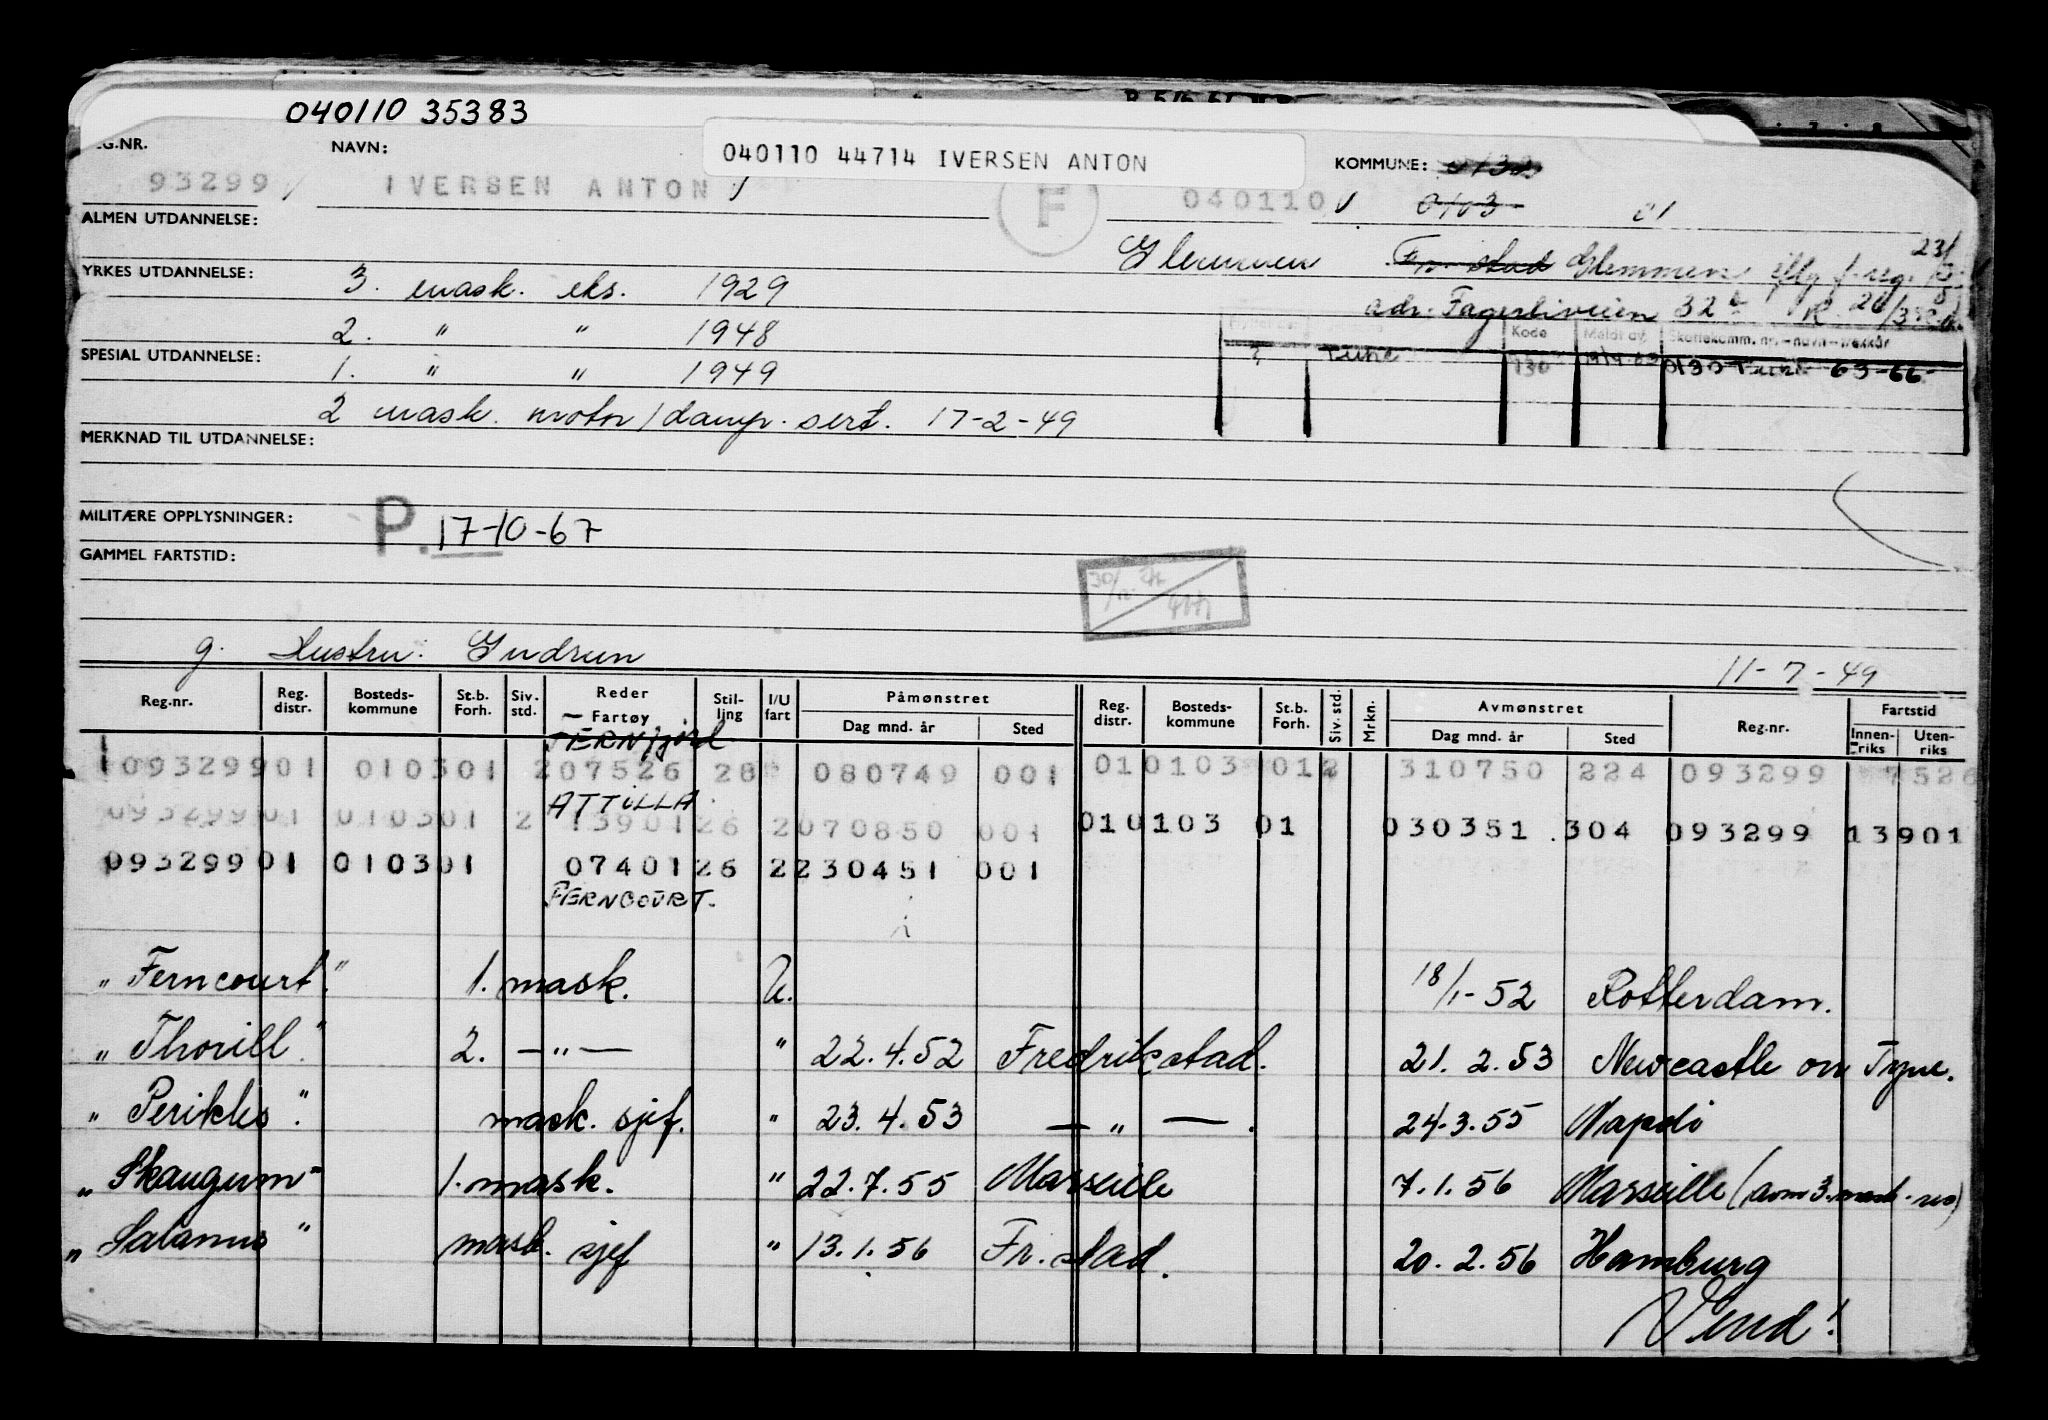 040110 35383
040110 44714 IVERSEN ANTON
NAVN:
KOMMUNE: 0130
93299 IVERSEN ANTON F 040110 0103 01
ALMEN UTDANNELSE:
Glemmen Fr. stad Glemmen iflg f.reg.
YRKES UTDANNELSE: 3. mask. eks. 1929
adr. Fagerliveien 32
2. " " 1948
Kode Meldt av. Skattekomm. nr.-navn-trekkår
SPESIAL UTDANNELSE:
Tune 130 0130 Tune 63-66-
1. " " 1949
2 mask. motor/damp. sert. 17-2-49
MERKNAD TIL UTDANNELSE:
MILITÆRE OPPLYSNINGER: P. 17-10-67
GAMMEL FARTSTID:
g. Hustru: Gudrun 11-7-49
Reg.nr. Reg. distr. Bosteds-kommune St.b. Forh. Siv. std. Reder Fartøy Stil-ling I/U fart Påmønstret Dag mnd. år Sted Reg. distr. Bosteds-kommune St.b. Forh. Siv. std. Mrkn. Avmønstret Dag mnd. år Sted Reg.nr. Fartstid Innen-riks Uten-riks
FERNfjord
109329901 010301 207526 28 080749 001 010103 012 310750 224 093299 7526
ATTILLA.
09329901 010301 2 1390126 2070850 001 010103 01 030351 304 093299 13901
09329901 010301 0740126 2230451 001
FERNCOURT.
"Ferncourt." 1. mask. U. 18/1-52 Rotterdam.
"Thorill." 2. —"— " 22.4.52 Fredrikstad. 21.2.53 Newcastle on Tyne.
"Perikles". mask. sjef. " 23.4.53 —"—. 24.3.55 Napoli
"Skaugum" 1. mask. " 22.7.55 Marseille 7.1.56 Marseille (avm 3. mask.
"Satanus" mask. sjef " 13.1.56 Fr.stad. 20.2.56 Hamburg
Vend!